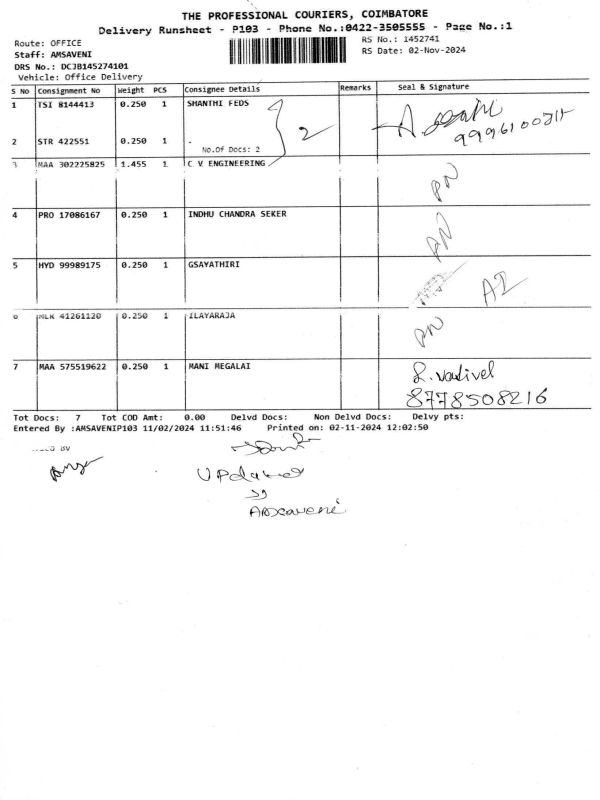 THE PROFESSIONAL COURIERS, COIMBATORE
Delivery Runsheet - P103 - Phone No.:0422-3505555 - Page No.:1
Route: OFFICE
RS No.: 1452741
Staff: AMSAVENI
RS Date: 02-Nov-2024
DRS No.: DCJB145274101
Vehicle: Office Delivery
S No Consignment No Weight PCS Consignee Details Remarks Seal & Signature
1 TSI 8144413 0.250 1 SHANTHI FEDS
2
2 STR 422551 0.250 1 -
No.Of Docs: 2
3 MAA 302225825 1.455 1 C. V. ENGINEERING
PN
4 PRO 17086167 0.250 1 INDHU CHANDRA SEKER
PN
5 HYD 99989175 0.250 1 GSAYATHIRI
6 MLK 41261120 0.250 1 ILAYARAJA
PN
7 MAA 575519622 0.250 1 MANI MEGALAI
8778508216
Tot Docs: 7 Tot COD Amt: 0.00 Delvd Docs: Non Delvd Docs: Delvy pts:
Entered By :AMSAVENIP103 11/02/2024 11:51:46 Printed on: 02-11-2024 12:02:50
BY
UPdated